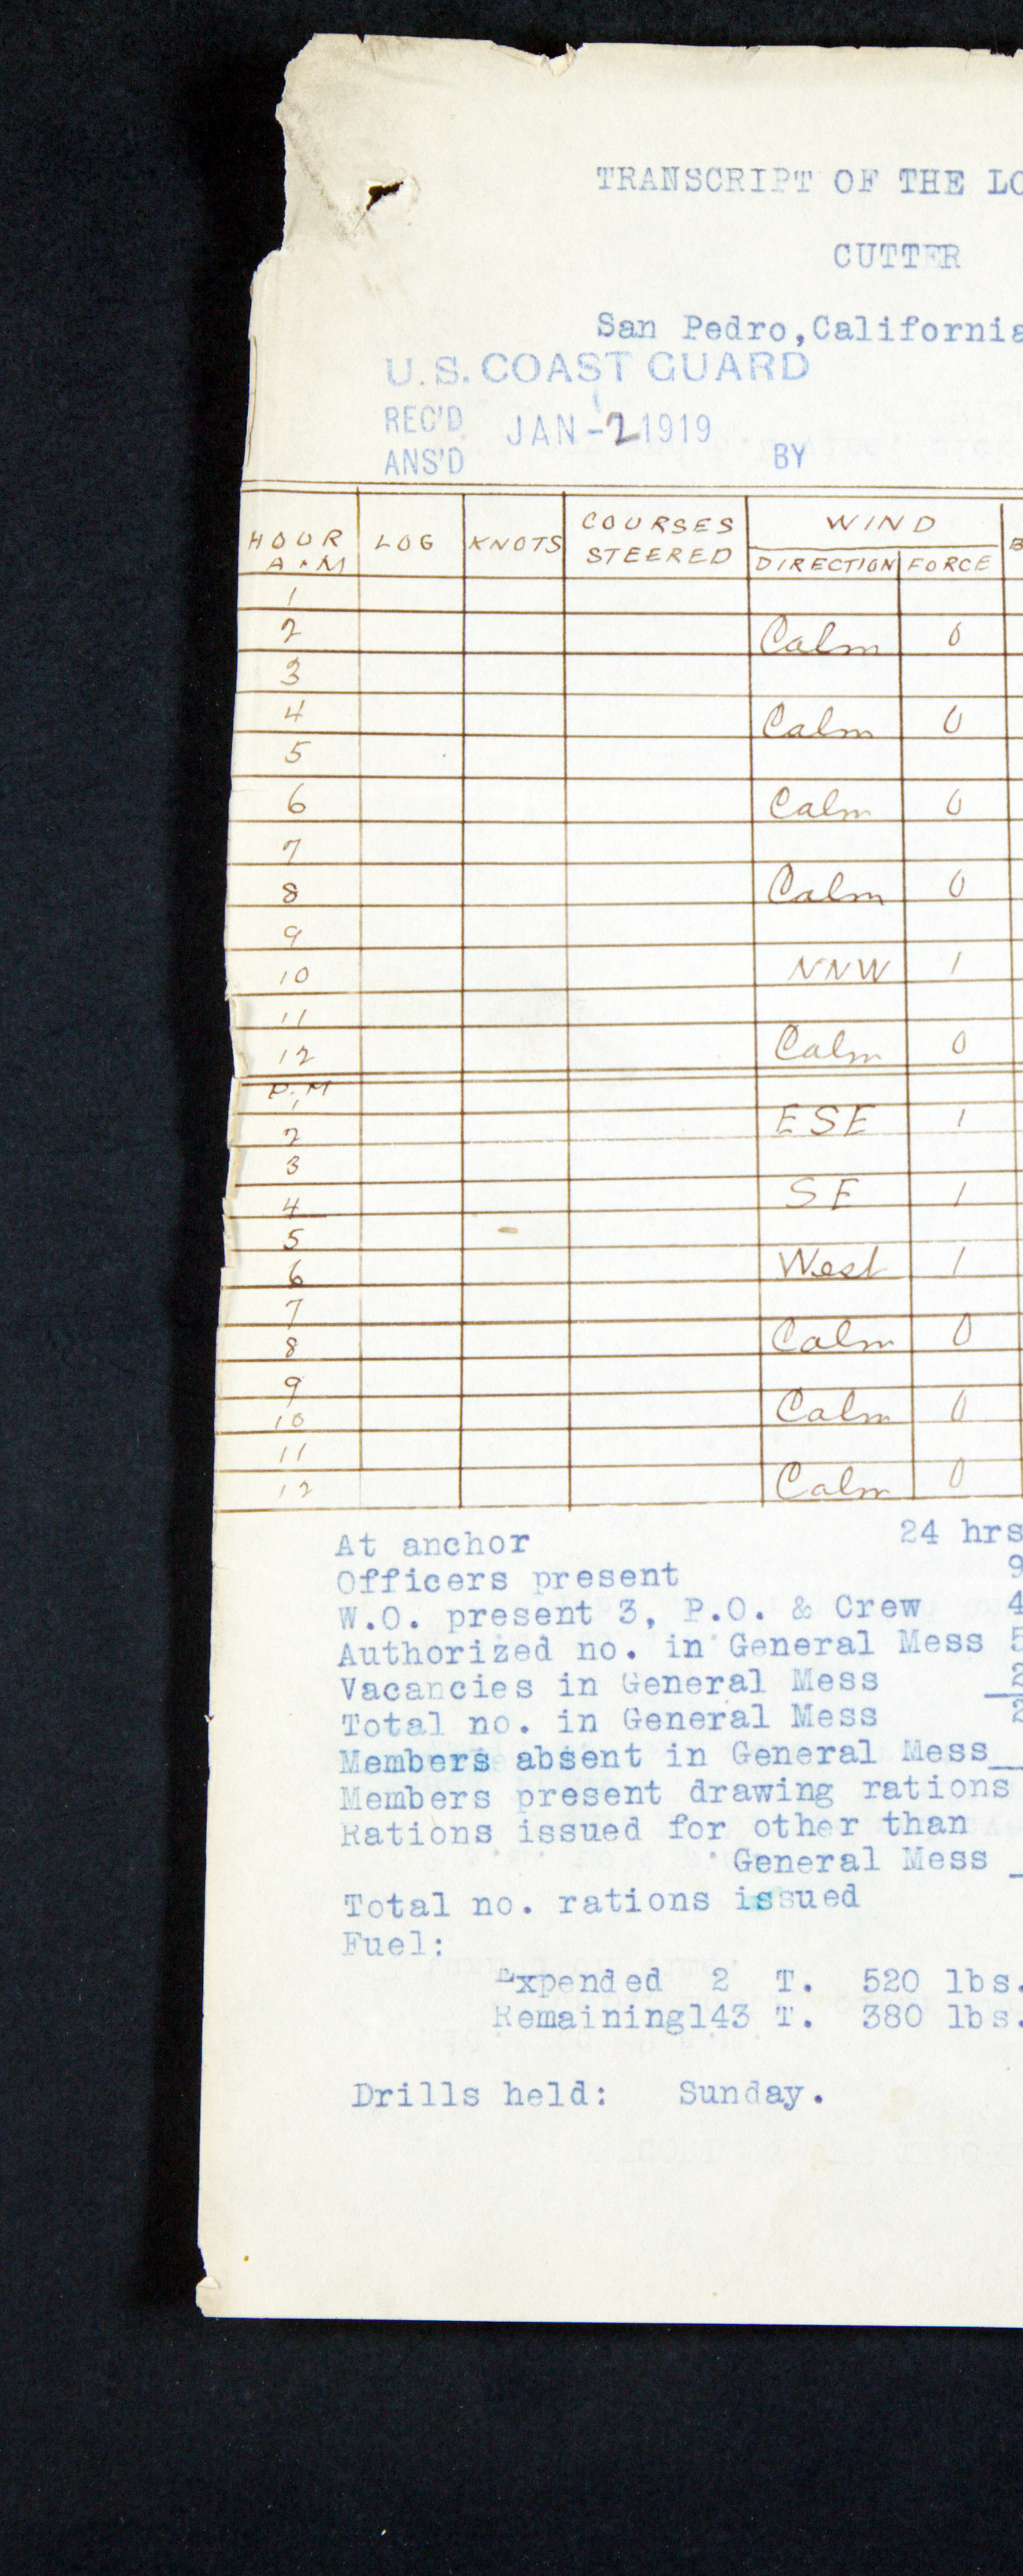 TRANSCRIPT OF THE LO
CUTTER
San Pedro,California
U.S. COAST GUARD
REC'D JAN-2 1919
ANS'D BY
HOUR A.M LOG KNOTS COURSES STEERED WIND B
DIRECTION FORCE
1
2 Calm 0
3
4 Calm 0
5
6 Calm 0
7
8 Calm 0
9
10 NNW 1
11
12 Calm 0
P.M
1
2 ESE 1
3
4 SE 1
5
6 West 1
7
8 Calm 0
9
10 Calm 0
11
12 Calm 0
At anchor 24 hrs
Officers present 9
W.O. present 3, P.O. & Crew 4
Authorized no. in General Mess 5
Vacancies in General Mess 2
Total no. in General Mess 2
Members absent in General Mess
Members present drawing rations
Rations issued for other than
General Mess
Total no. rations issued
Fuel:
Expended 2 T. 520 lbs.
Remaining143 T. 380 lbs.
Drills held: Sunday.